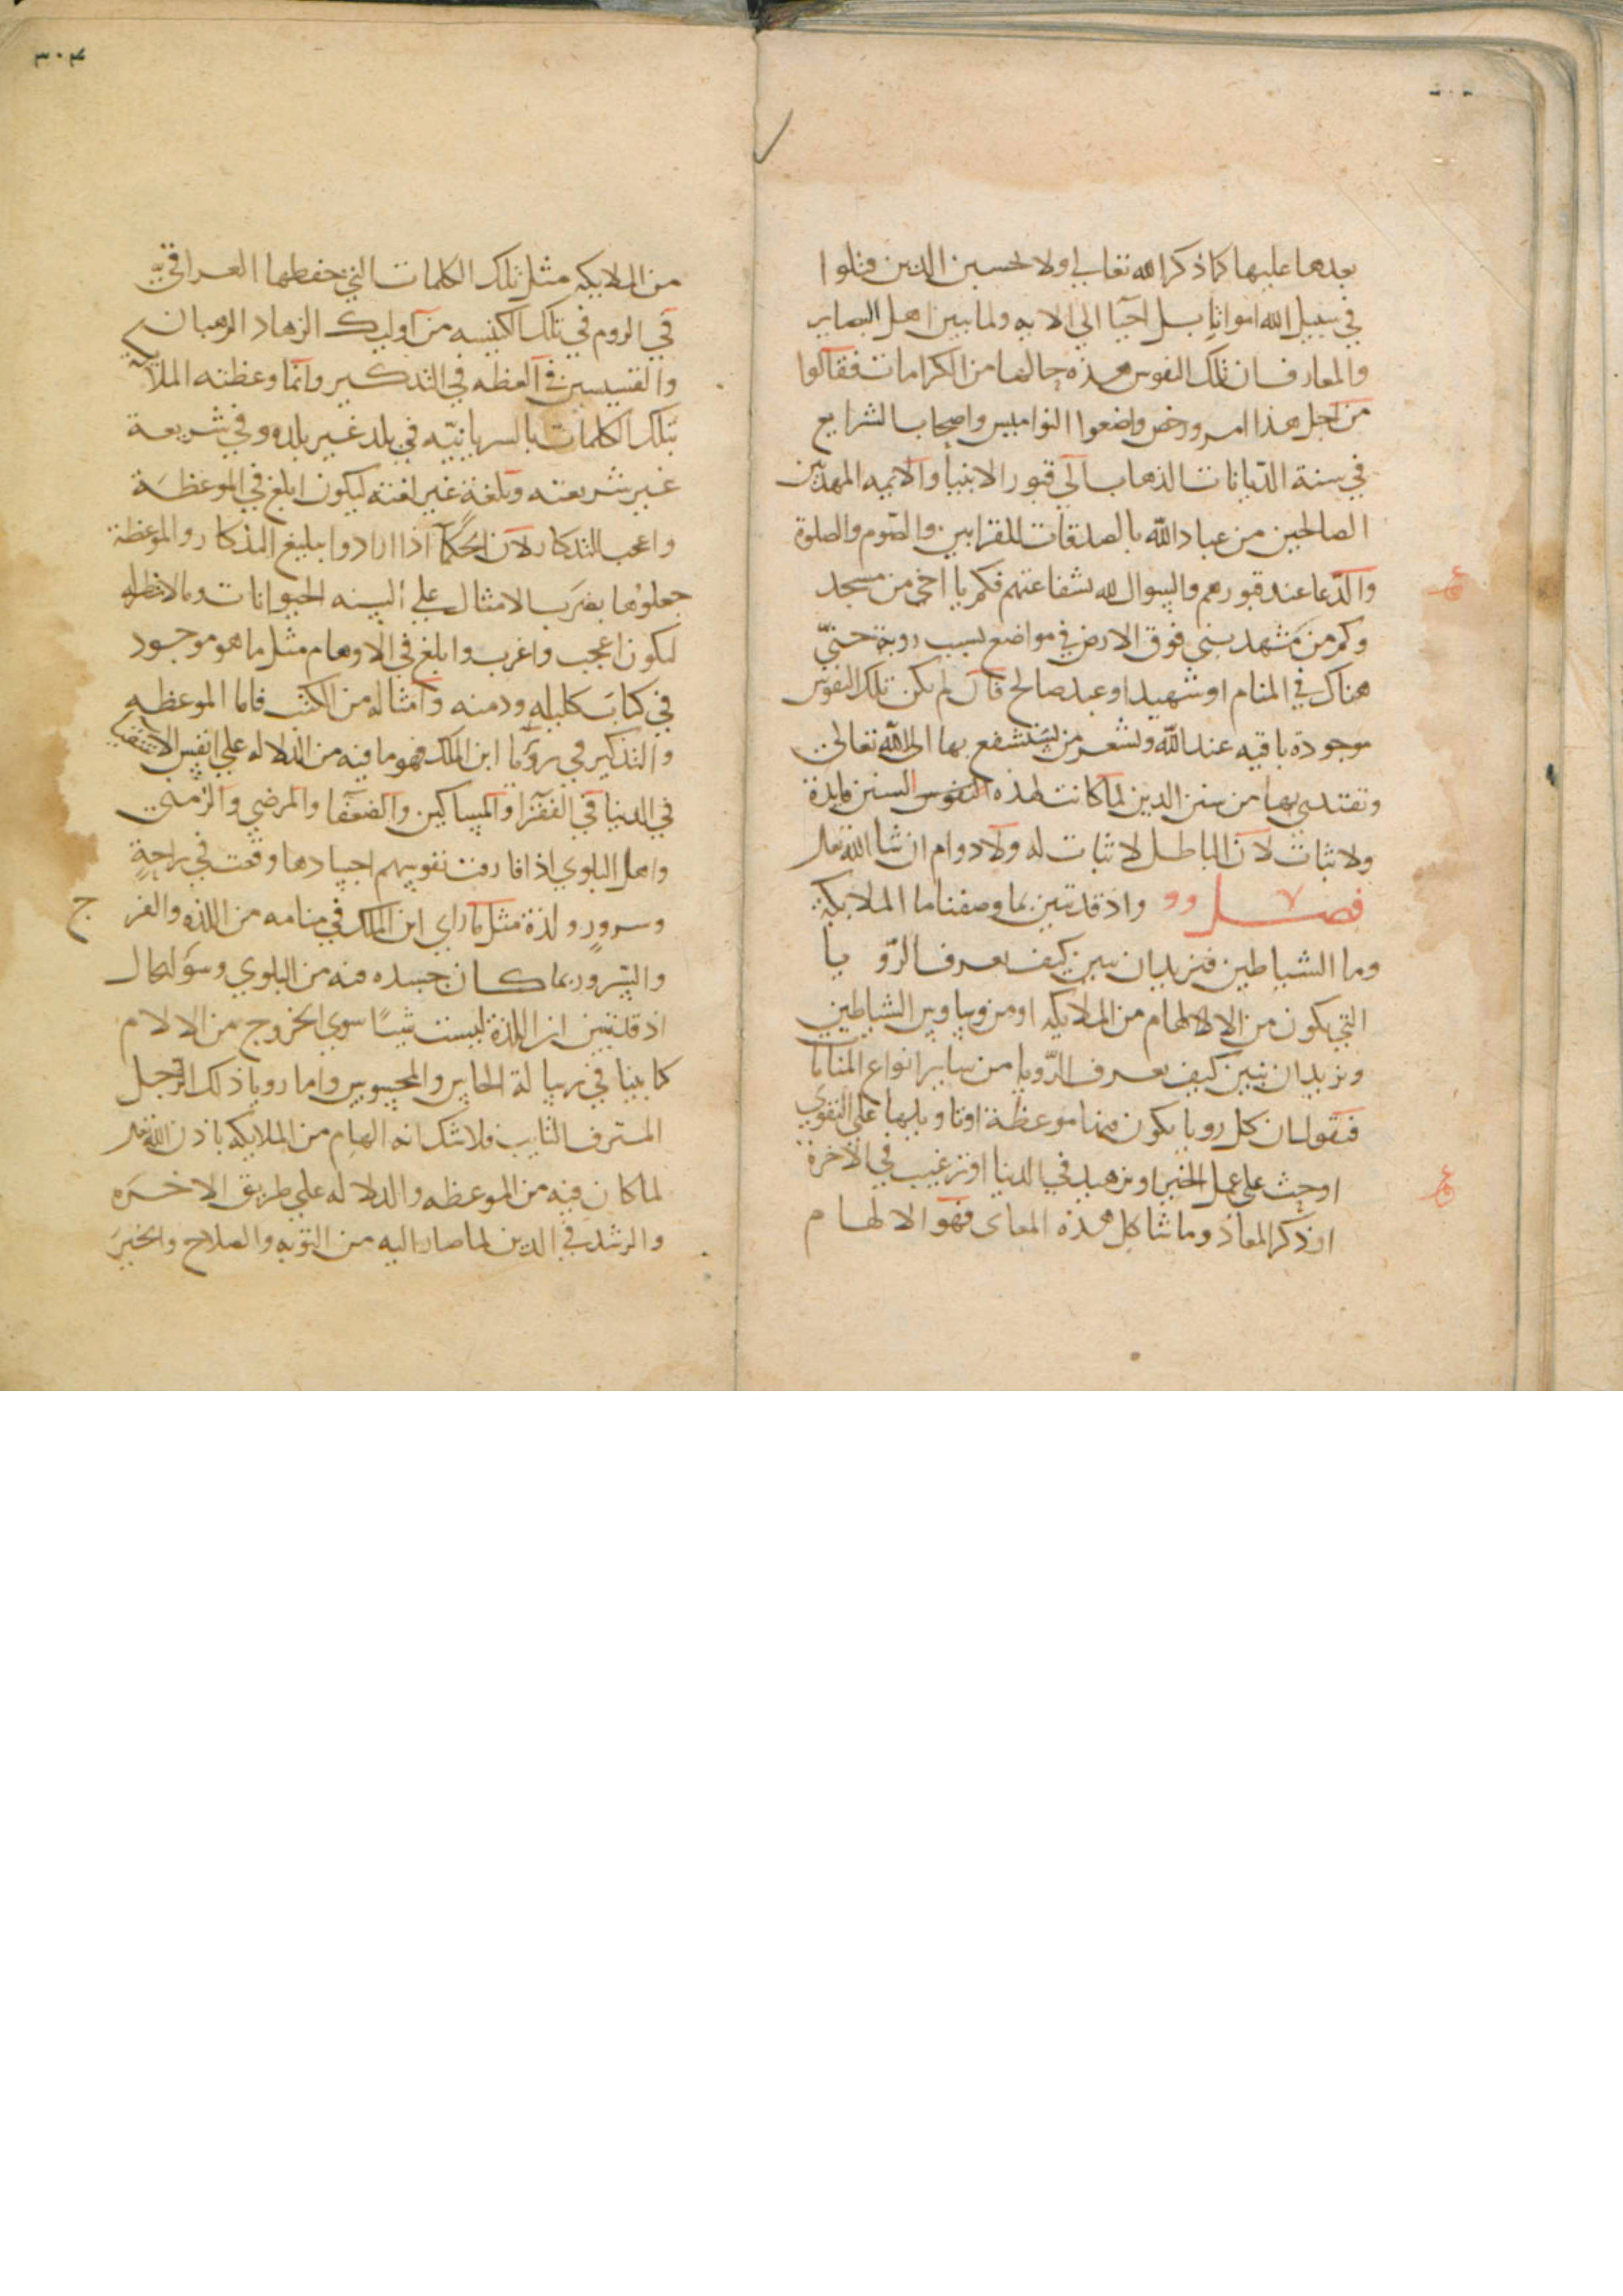 بعدها عليها كما ذكر الله تعالى ولا تحسبن الذين قتلوا
في سبيل الله امواتا بل احيا الى الايه ولما بين اهل البصاير
والمعارف ان تلك النفوس هذه حالها من الكرامات فقالوا
من اجل هذا امر ورخص واضعوا النواميس واصحاب الشرايع
في سنة الديانات الذهاب الى قبور الانبيا والايمه المهديين
الصالحين من عباد الله بالصدقات للقرابين والصوم والصلوة
والدعا عند قبورهم والسوال لله بشفاعتهم فكم يا اخي من مسجد
وكم من مشهد بني فوق الارض في مواضع بسبب روية حتى
هناك في المنام او شهيد او عبد صالح فان لم يكن تلك النفوس
موجودة باقيه عند الله وتشعر من يستشفع بها الى الله تعالى
وتقتدى بها من سنن الدين لما كانت لهذه النفوس السنن فايدة
ولا ثبات لان الباطل لا ثبات له ولا دوام ان شا الله تعالى
فصل واذ قد تبين بما وصفنا ما الملايكة
وما الشياطين فنريد ان نبين كيف نعرف الرويا
التي يكون من الالهام من الملايكه او من وساويس الشياطين
ونريد ان نبين كيف نعرف الرويا من ساير انواع المنامات
فنقول ان كل رويا يكون فيها موعظة او تاويلها على التقوى
او حث على عمل الخير او تزهيد في الدنيا او ترغيب في الاخرة
او ذكر المعاد وما شاكل هذه المعانى فهو الالهام
٣٠٣
من الملايكه مثل تلك الكلمات التي حفظها العراقي
في الروم في تلك الكنيسه من اوليك الزهاد الرهبان
والقسيسين في العظه في التذكير وانما وعظته الملايكه
بتلك الكلمات بالسريانيه في بلد غير بلده وفي شريعة
غير شريعته وبلغة غير لغته ليكون ابلغ في الموعظة
واعجب التذكار لان الحكما اذا ارادوا بتبليغ التذكار والموعظة
جعلوها بضرب الامثال على السنه الحيوانات وبالانظار
ليكون اعجب واغرب وابلغ في الاوهام مثل ما هو موجود
في كتاب كليله ودمنه وامثاله من الكتب فاما الموعظه
والتذكير في رويا ابن الملك فهو ما فيه من الدلاله على انفس
في الدنيا في الفقرا والمساكين والضعفا والمرضي والزمني
واهل البلوي اذا فارقت نفوسهم اجسادها وقعت في راحة
وسرور ولذة مثل ما راي ابن الملك في منامه من اللذه والفر ح
والسرور بما كان جسده فيه من البلوي وسوء الحال
اذ قد تبين ان اللذة ليست شيئا سوي الخروج من الالام
كما بينا في رسالة الحاس والمحسوس واما رويا ذلك الرجل
المسترف التايب فلا شك انه الهام من الملايكه باذن الله تعالى
لما كان فيه من الموعظه والدلاله علي طريق الاخره
والرشد في الدين لما صار اليه من التوبه والصلاح والخير